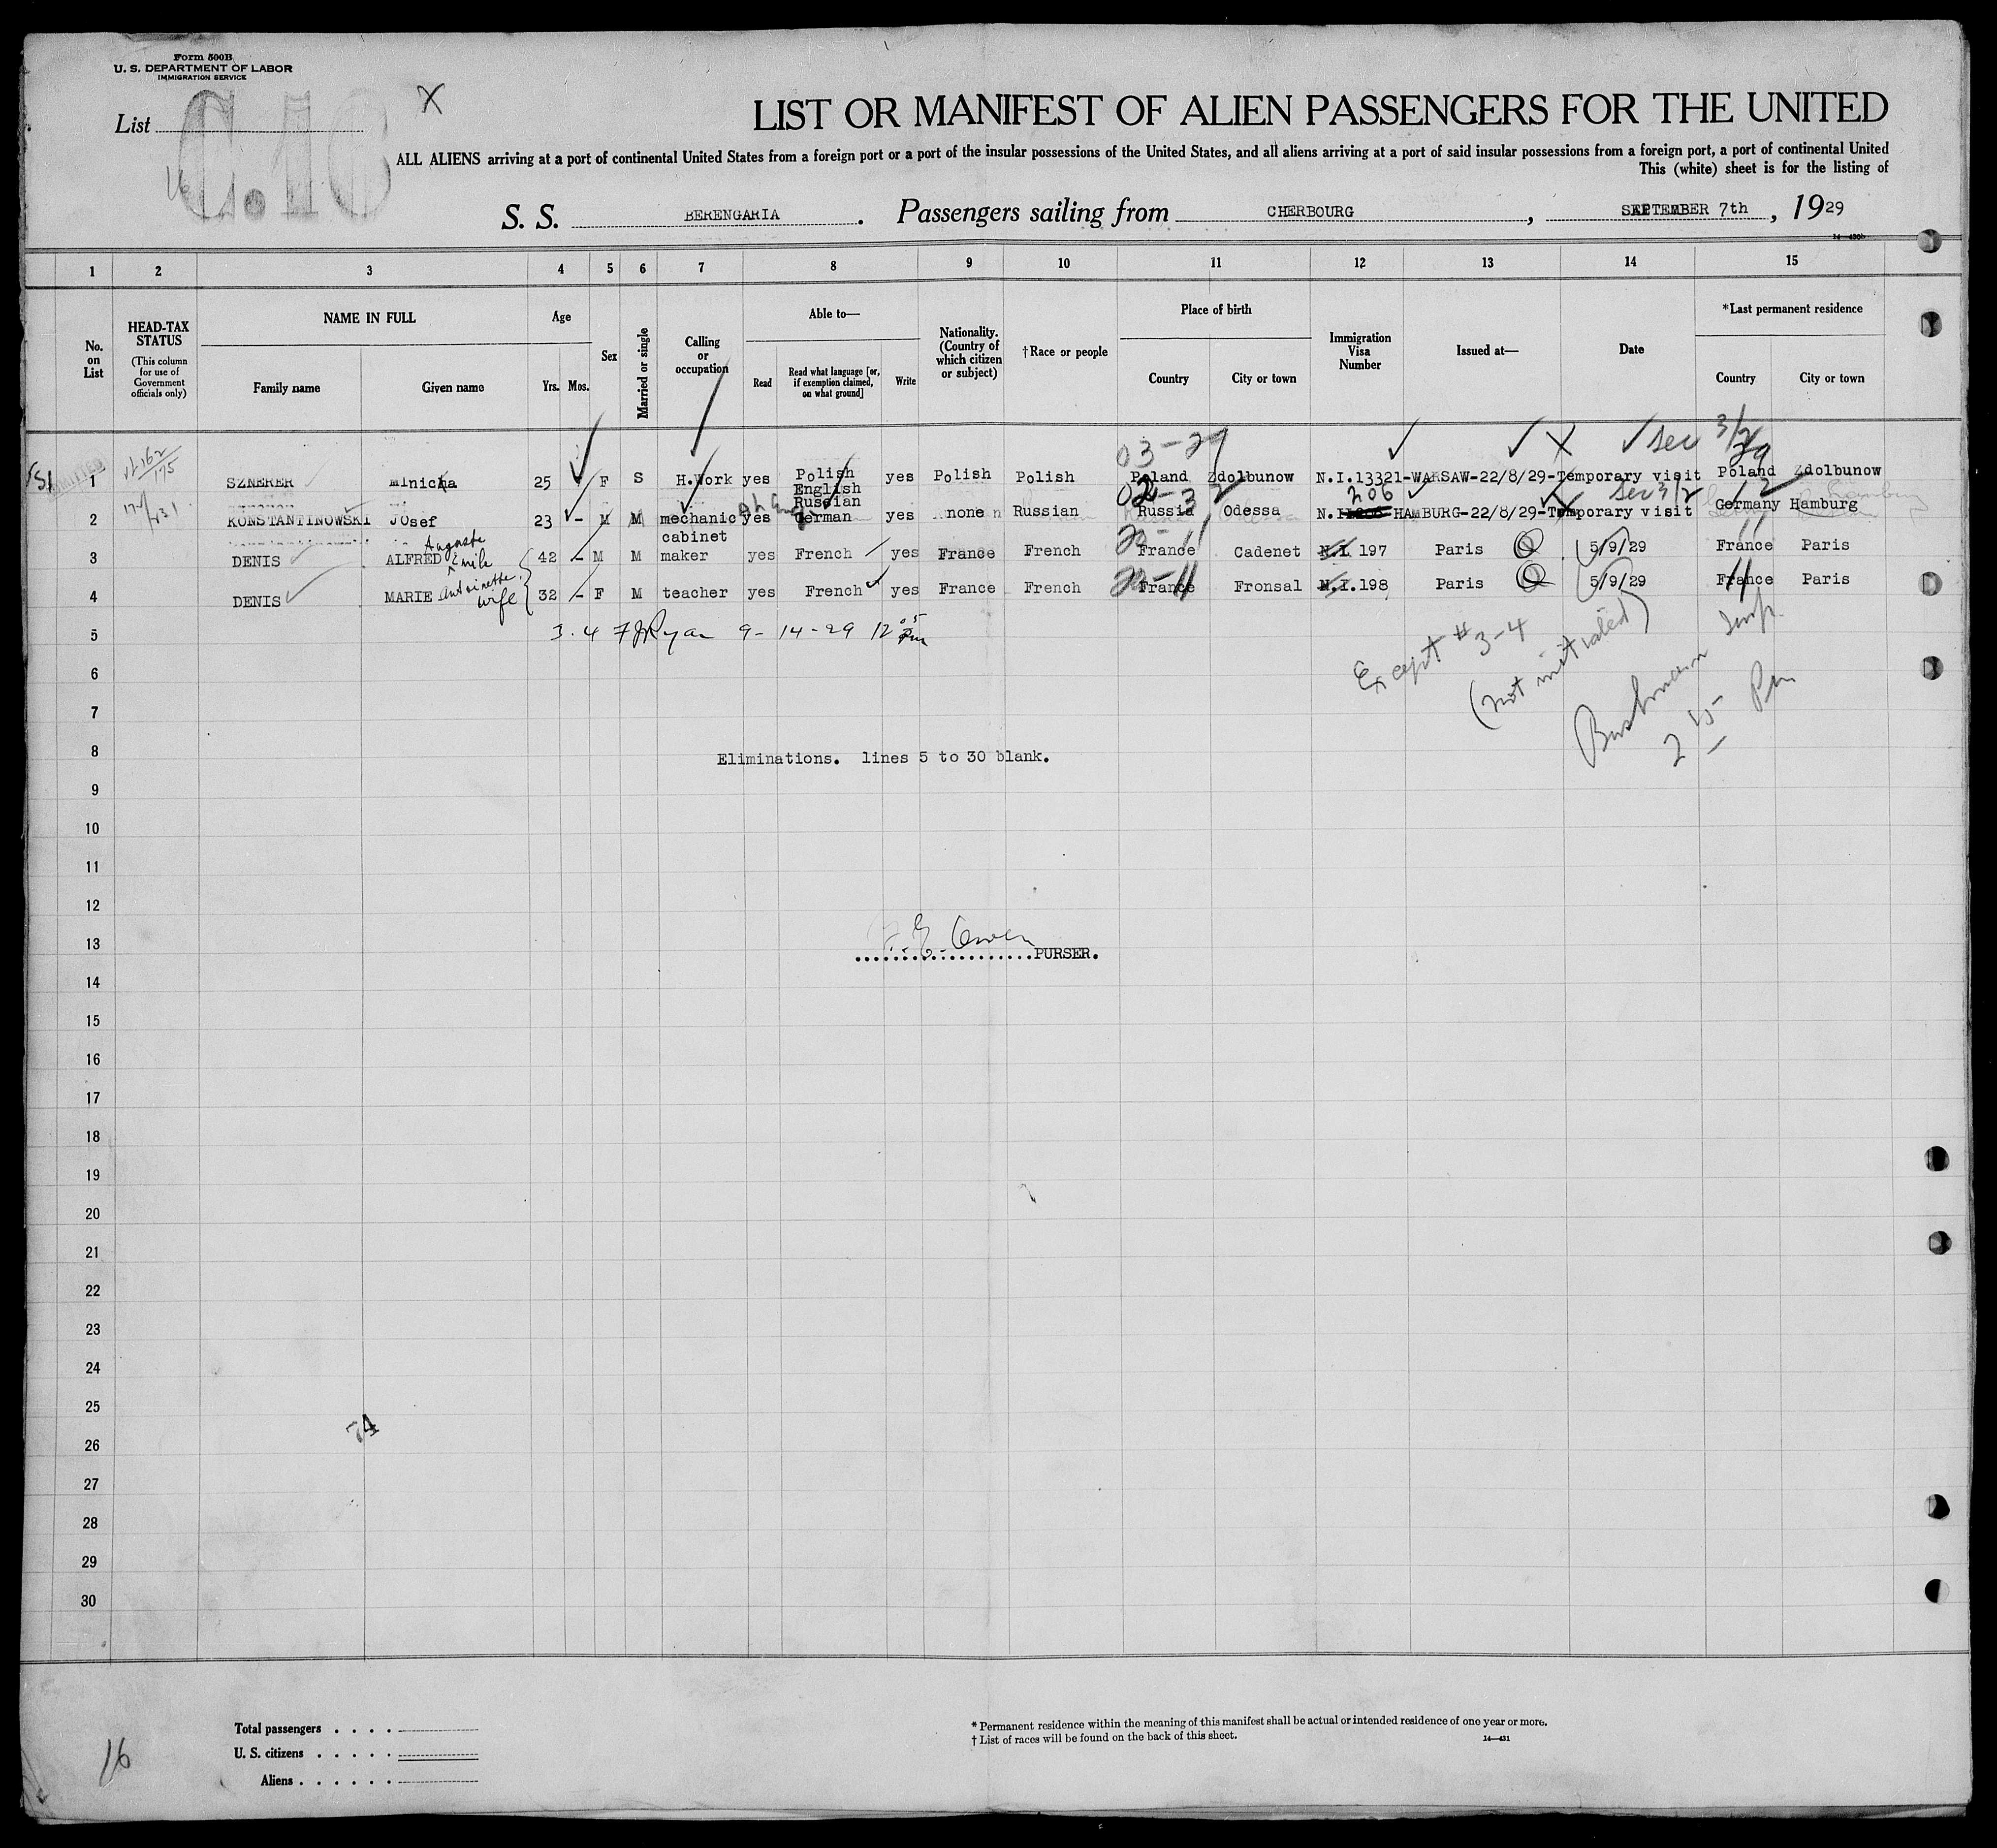 Form 500B
U. S. DEPARTMENT OF LABOR
IMMIGRATION SERVICE
List
C.16
X
LIST OR MANIFEST OF ALIEN PASSENGERS FOR THE UNITED
ALL ALIENS arriving at a port of continental United States from a foreign port or a port of the insular possessions of the United States, and all aliens arriving at a port of said insular possessions from a foreign port, a port of continental United
This (white) sheet is for the listing of
S. S. BERENGARIA. Passengers sailing from CHERBOURG, SEPTEMBER 7th, 1929
14—430b
1 2 3 4 5 6 7 8 9 10 11 12 13 14 15
No. on List
HEAD-TAX STATUS
(This column for use of Government officials only)
NAME IN FULL
Family name Given name
Age
Yrs. Mos.
Sex
Married or single
Calling or occupation
Able to—
Read
Read what language [or, if exemption claimed, on what ground]
Write
Nationality. (Country of which citizen or subject)
†Race or people
Place of birth
Country City or town
Immigration Visa Number
Issued at—
Date
*Last permanent residence
Country City or town
03-29 sec 3/2 29
1 SZNERER 25 F S H.Work yes Polish English yes Polish Polish Poland Zdolbunow N.I.13321-WARSAW-22/8/29-Temporary visit Poland Zdolbunow
206 sec 3/2
2 KONSTANTINOWSKI Josef 23 - M M mechanic yes Russian German yes none Russian Russia Odessa N.I. HAMBURG-22/8/29-Temporary visit Germany Hamburg
3 DENIS ALFRED Auguste Emile 42 - M M cabinet maker yes French yes France French France Cadenet N.I. 197 Paris 5/9/29 France Paris
4 DENIS MARIE Antoinette wife 32 - F M teacher yes French yes France French France Fronsal N.I.198 Paris 5/9/29 France Paris
5 3.4 FJRyan 9-14-29 12 05 Pm
Except #3-4
(not initialed)
Insp.
2 15 Pm
6
7
8 Eliminations. lines 5 to 30 blank.
9
10
11
12
13 Owen
..................PURSER.
14
15
16
17
18
19
20
21
22
23
24
25
74
26
27
28
29
30
Total passengers . . . .
U. S. citizens . . . . .
Aliens . . . . . .
* Permanent residence within the meaning of this manifest shall be actual or intended residence of one year or more.
† List of races will be found on the back of this sheet.
14—431
16